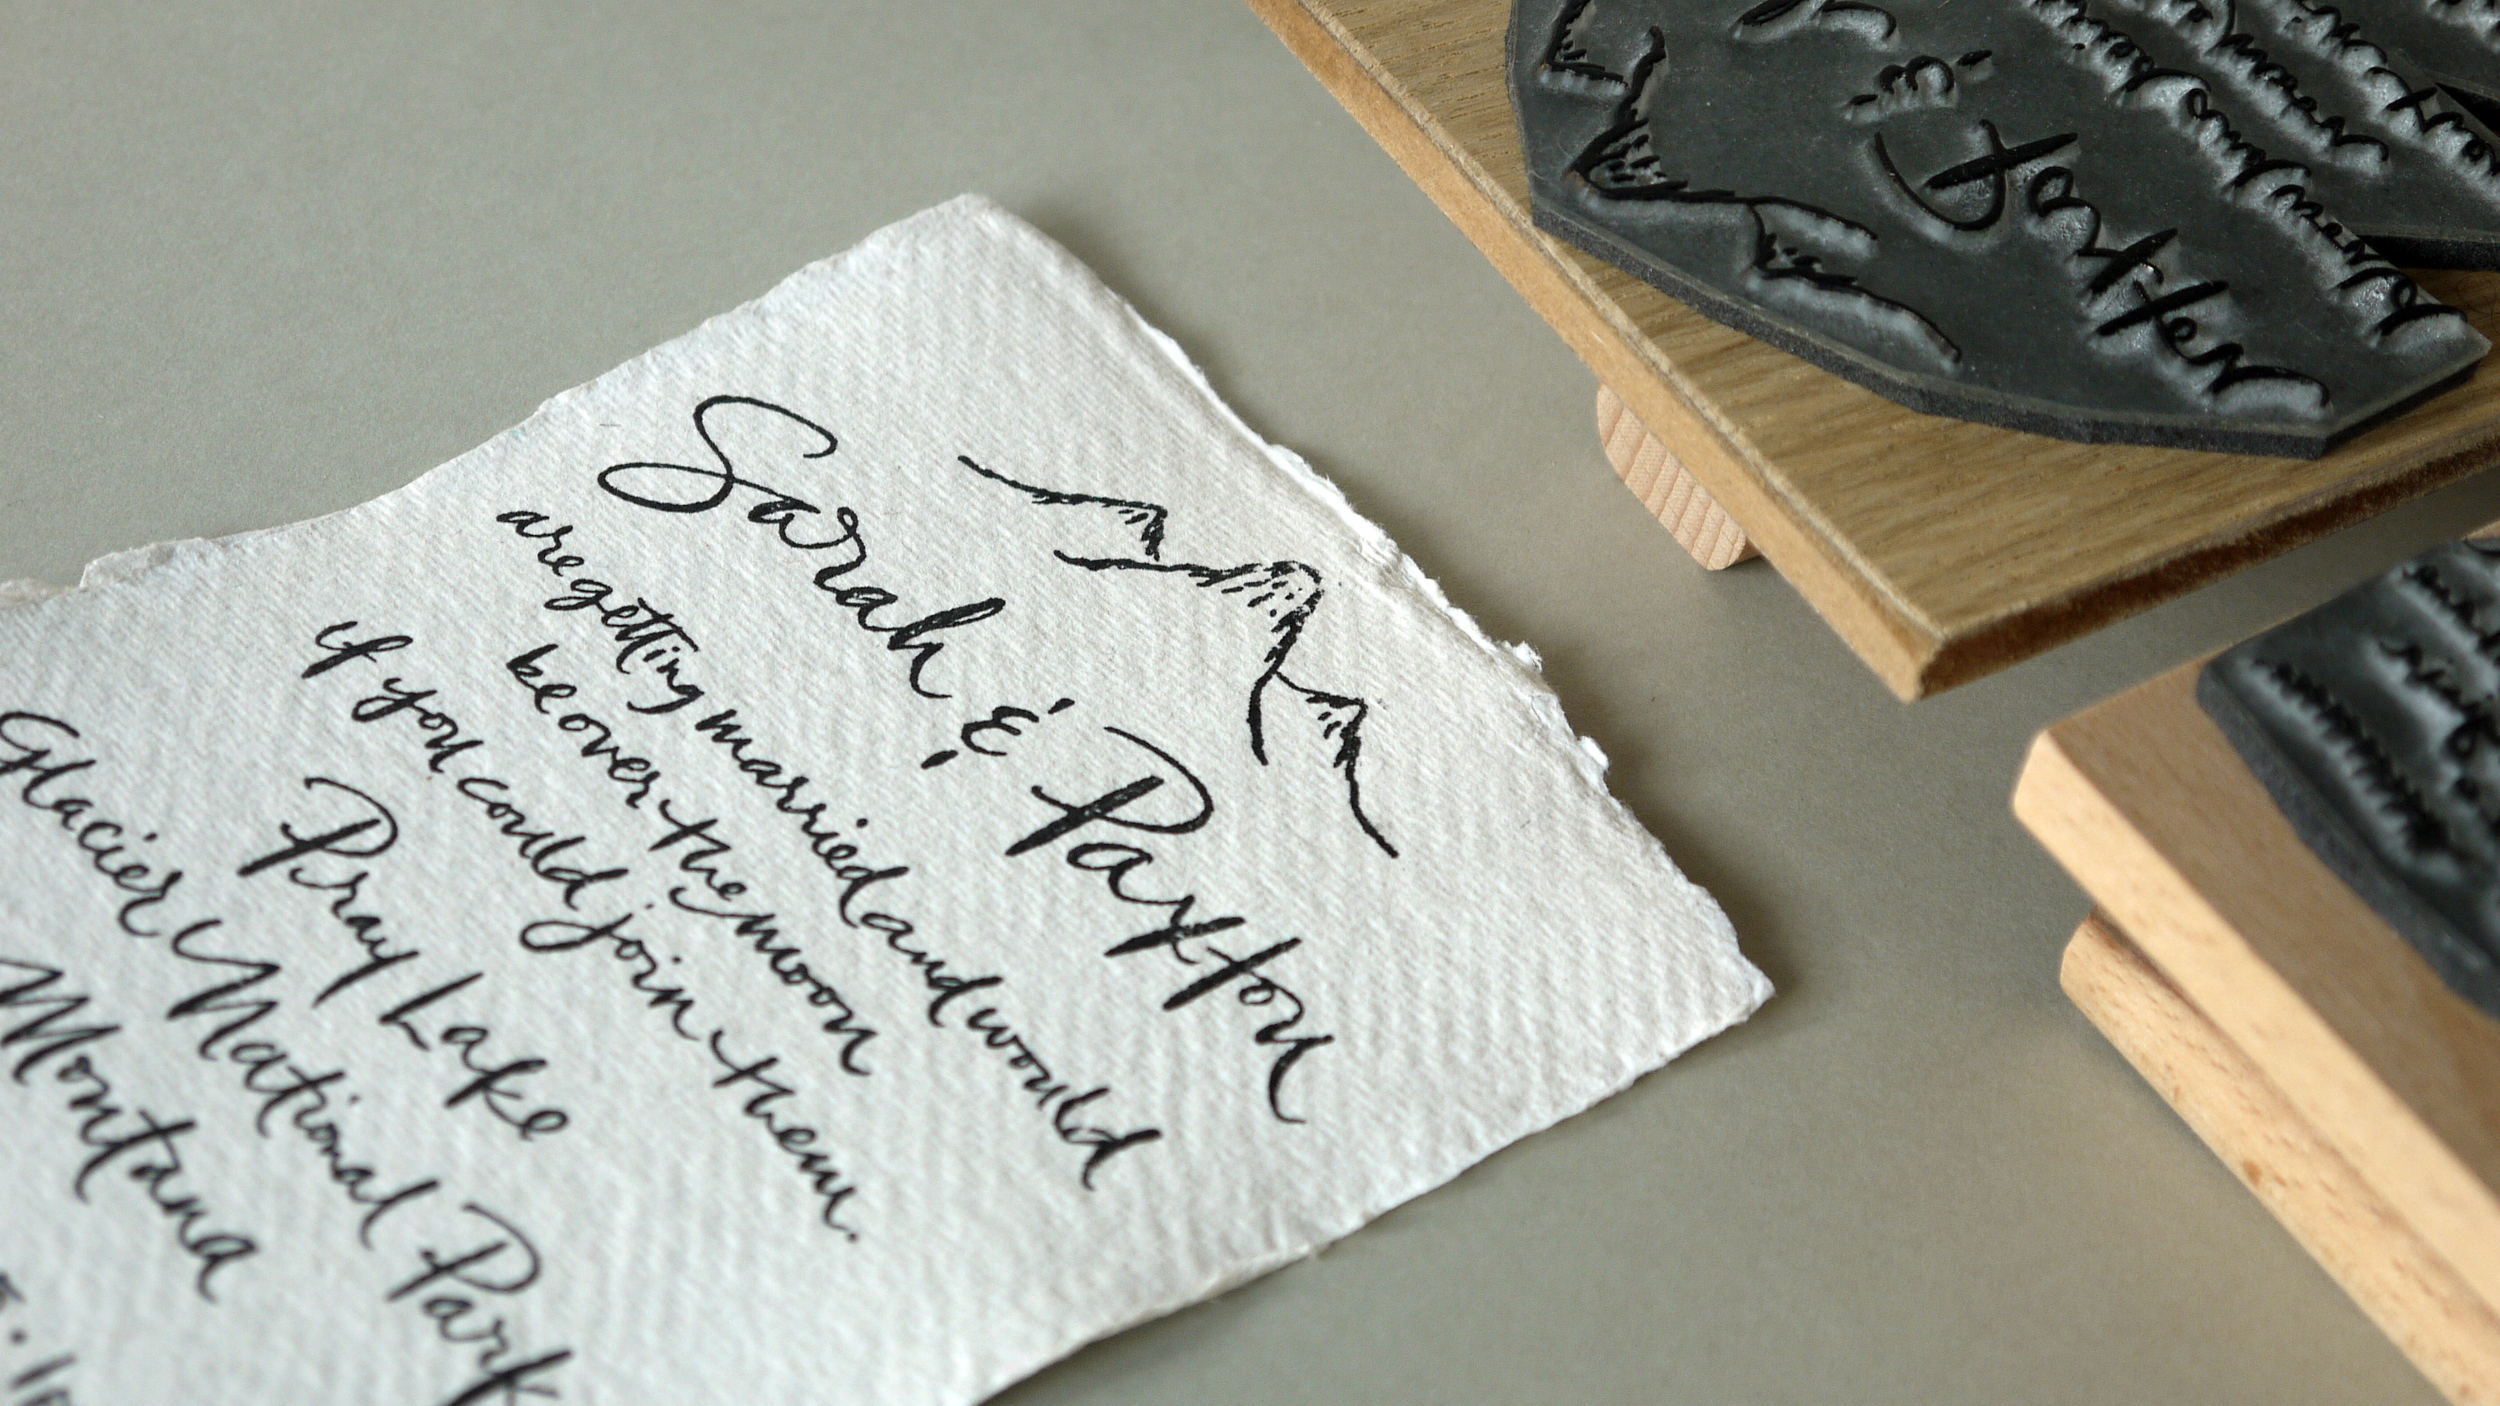 Sarah & Payton
are getting married and would
be over the moon
if you could join them.
Pray Lake
Glacier National Park
Montana